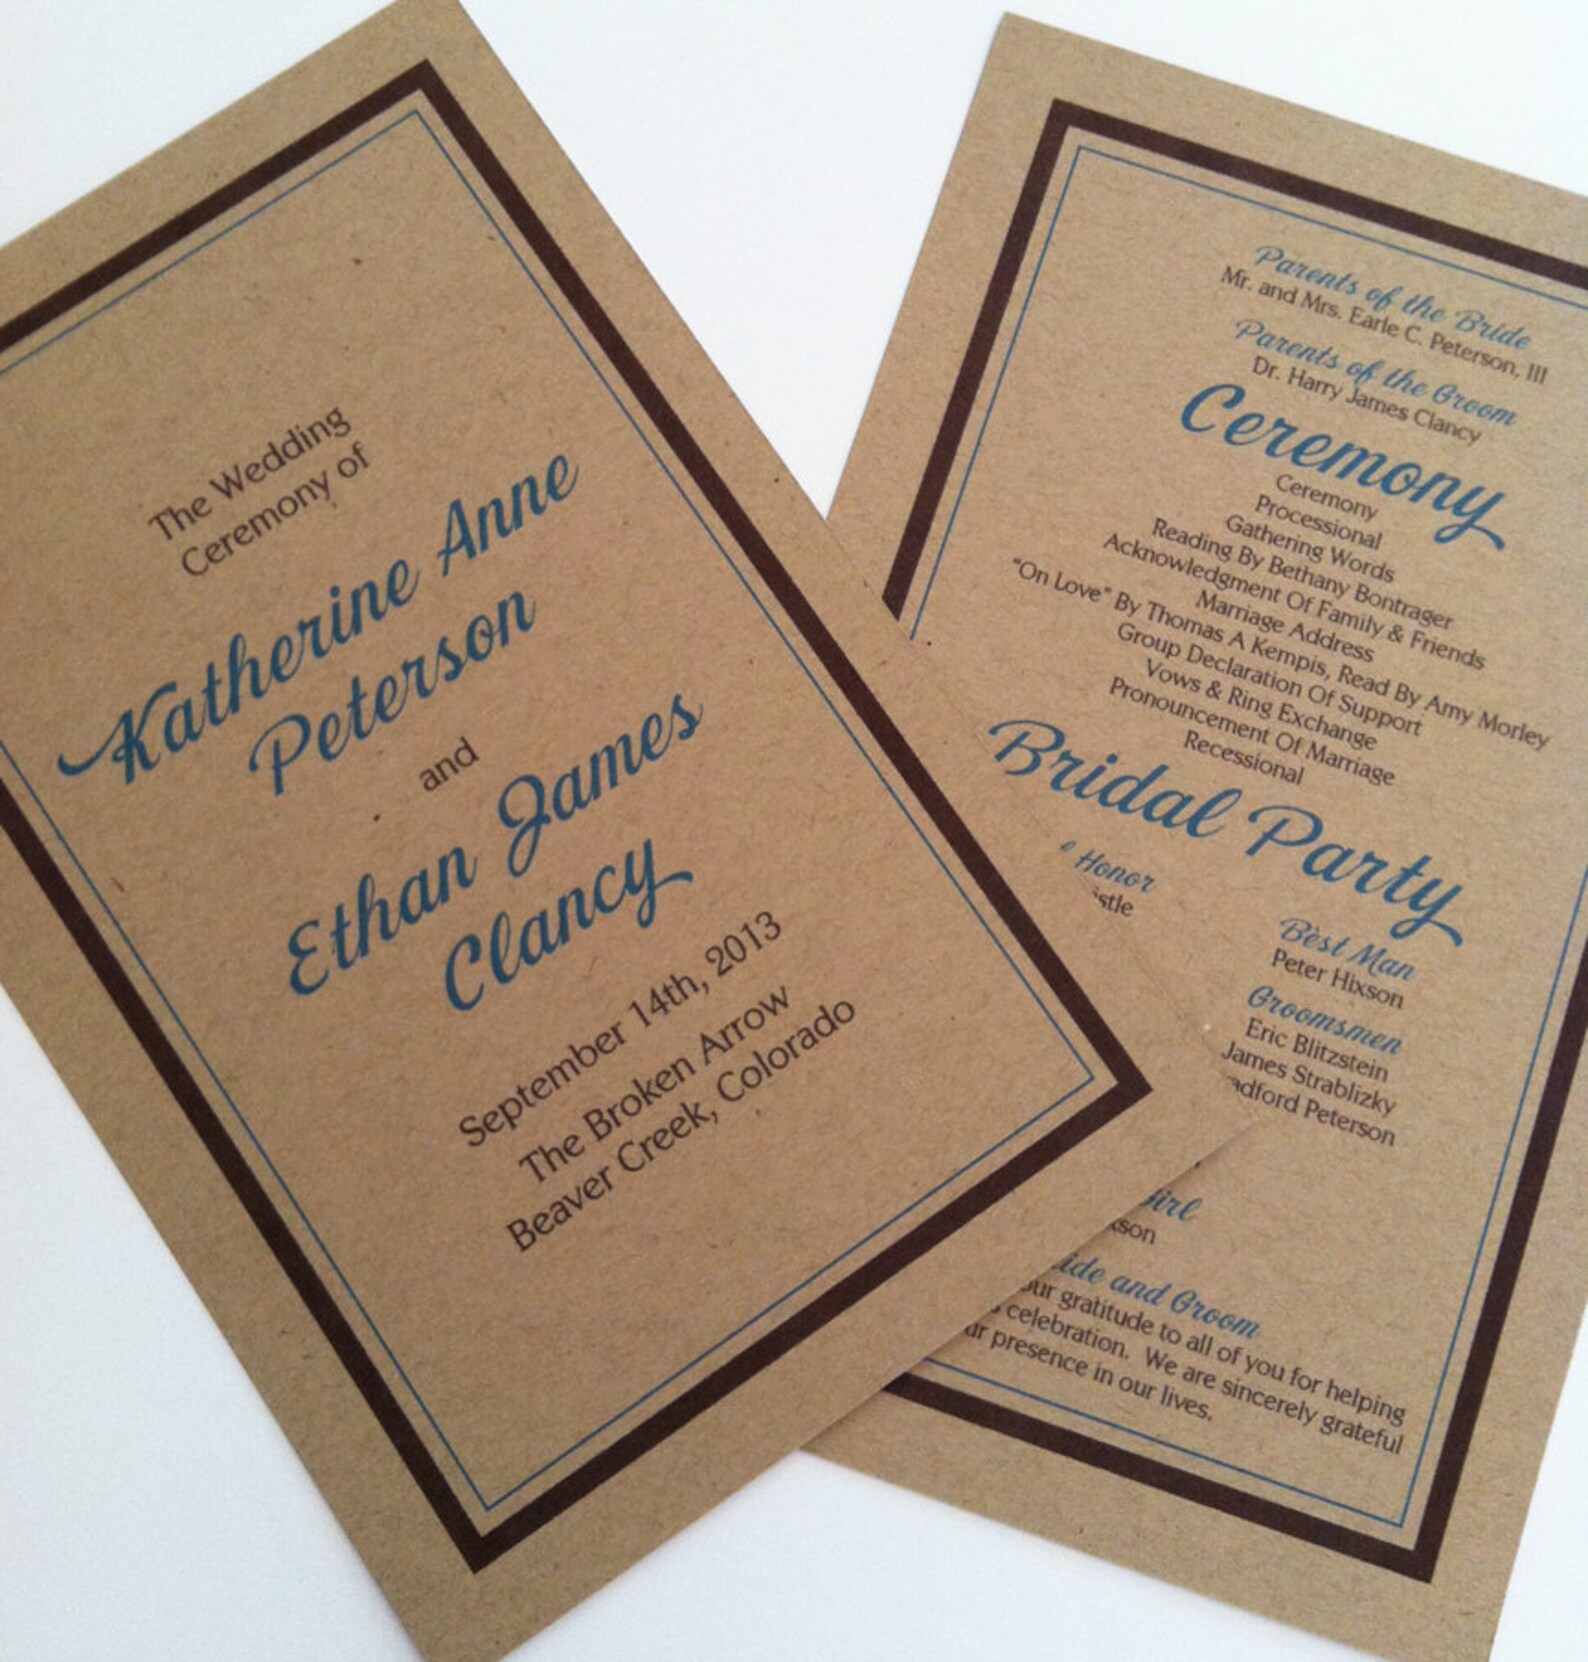 The Wedding
Ceremony of
Katherine Anne
Peterson
and
Ethan James
Clancy
September 14th, 2013
The Broken Arrow
Beaver Creek, Colorado
Parents of the Bride
Mr. and Mrs. Earle C. Peterson, III
Parents of the Groom
Dr. Harry James Clancy
Ceremony
Ceremony
Processional
Gathering Words
Reading By Bethany Bontrager
Acknowledgment Of Family & Friends
Marriage Address
"On Love" By Thomas A Kempis, Read By Amy Morley
Group Declaration Of Support
Vows & Ring Exchange
Pronouncement Of Marriage
Recessional
Bridal Party
Honor
Best Man
Peter Hixson
Groomsmen
Eric Blitzstein
James Strablizky
Peterson
and Groom
gratitude to all of you for helping
celebration. We are sincerely grateful
presence in our lives.